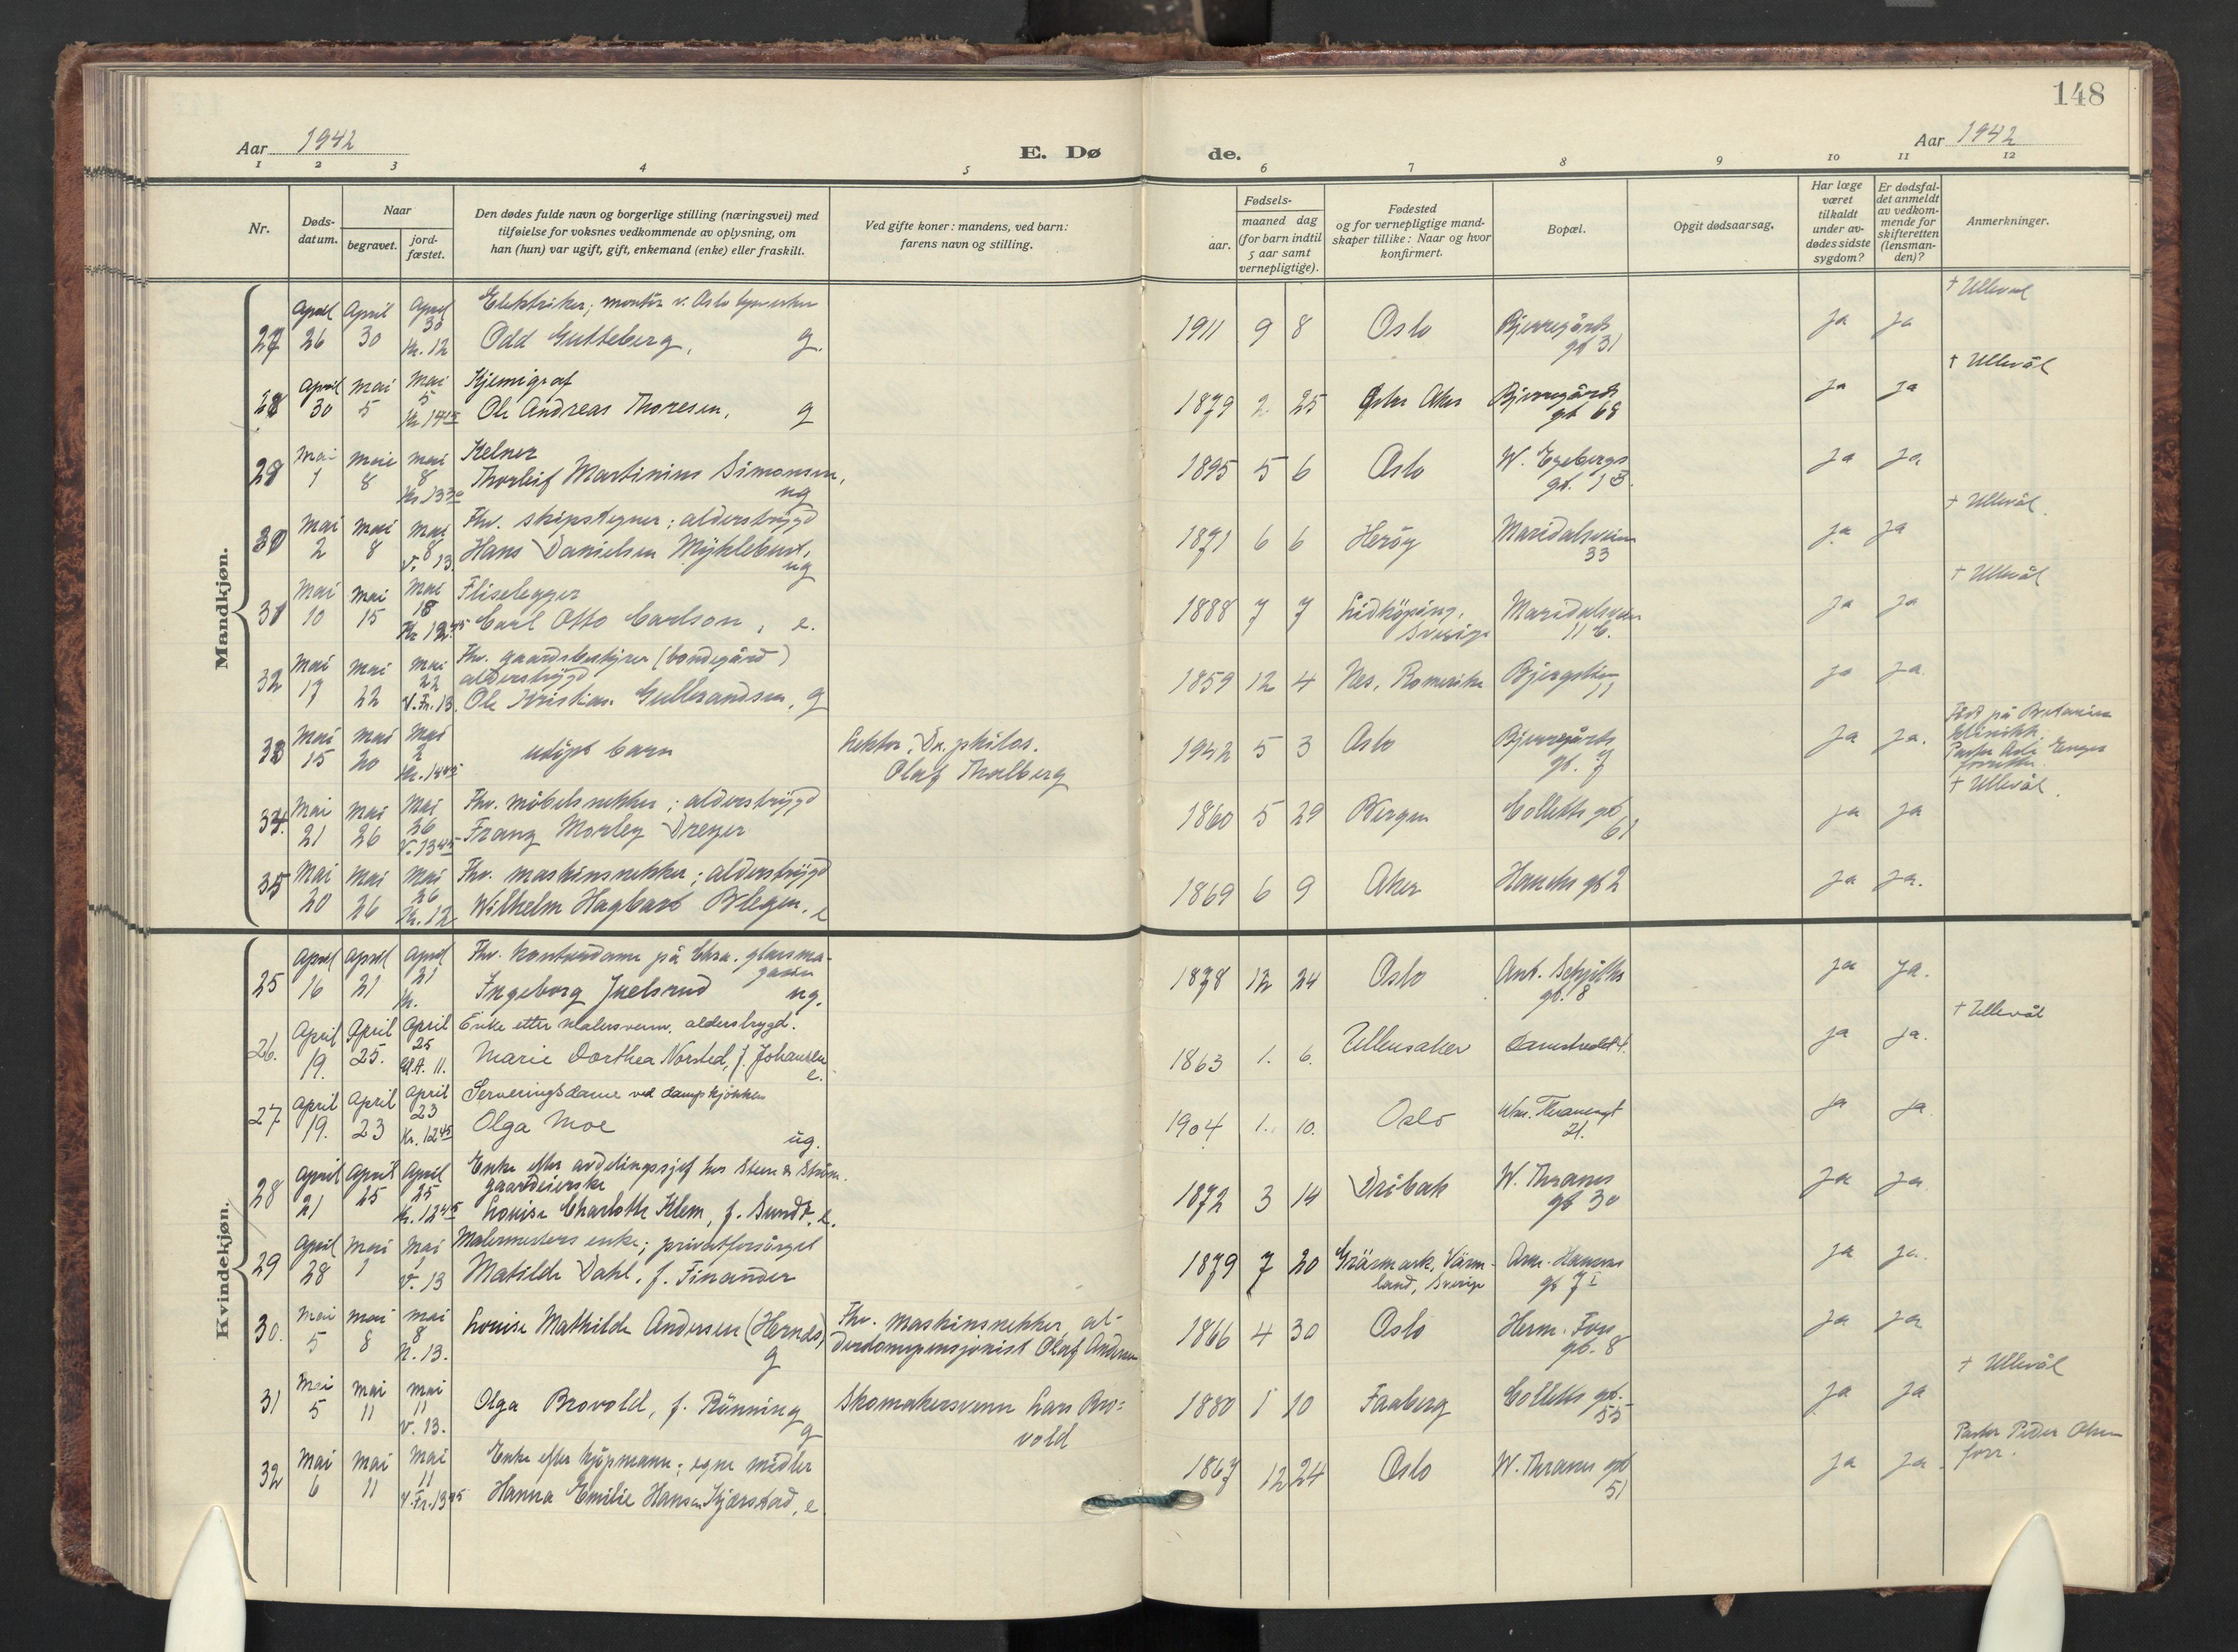 148
Aar 1942
E. Dø
de.
Aar 1942
1 2 3 4 5 6 7 8 9 10 11 12
Nr.
Døds-
datum.
Naar
begravet.
jord-
fæstet.
Den dødes fulde navn og borgerlige stilling (næringsvei) med
tilføielse for voksnes vedkommende av oplysning, om
han (hun) var ugift, gift, enkemand (enke) eller fraskilt.
Ved gifte koner: mandens, ved barn:
farens navn og stilling.
Fødsels-
aar.
maaned dag
(for barn indtil
5 aar samt
vernepligtige).
Fødested
og for vernepligtige mand-
skaper tillike: Naar og hvor
konfirmert.
Bopæl.
Opgit dødsaarsag.
Har læge
været
tilkaldt
under av-
dødes sidste
sygdom?
Er dødsfal-
det anmeldt
av vedkom-
mende for
skifteretten
(lensman-
den)?
Anmerkninger.
Mandkjøn.
April April April Elektriker; montör v. Oslo † Ulleval
27 26 30 30 Kr. 12 Odd Gutteberg, g. 1911 9 8 Oslo Bjerregårds gt 31 ja ja
April Mai Mai Kjemigraf † Ullevål
28 30 5 5 Kr. 14 15 Ole Andreas Thoresen, g 1879 2 25 Aker Bjerregårds gt 68 ja ja
Mai Mai Mai Kelner
29 1 8 8 Kr. 13 30 Thorleif Martinius Simonsen, ug 1895 5 6 Oslo W. Egebergs gt. 13. ja ja
Mai Mai Mai Fhv. ; alderstrygd † Ullevål.
30 2 8 8 V. 13. Hans Danielsen Myklebust, ug 1871 6 6 Heröy Maridalsveien 33 ja ja
Mai Mai Mai Fliselegger † Ullevål
31 10 15 18 Kr. 12 45 Carl Otto Carlson, e. 1888 7 7 Lidköping, Sverige Maridalsveien 11 c. ja ja
Mai Mai Mai Fhv. gaardsbestyrer (bondegård)
alderstrygd
32 17 22 22 V. Fr. 13. Ole Kristian Gullbrandsen, g 1859 12 4 Nes, Romerike 11 ja ja.
Mai Mai Mai Lektor, Dr. philos. Född på
33 15 20 2 Kr. 14 45 udöpt barn Olaf Tholberg 1942 5 3 Oslo Bjerregårds gt. 7 ja ja. klinikk.
Mai Mai Mai Fhv. möbelsnekker; alderstrygd † Ullevål.
34. 21 26 26 V. 13 45 Franz Morley Dreyer 1860 5 29 Bergen Colletts gt 61 ja ja
Mai Mai Mai Fhv. maskinsnekker; alderstrygd
35 20 26 26 Kr. 12 Wilhelm Hagbart Blegen, e 1869 6 9 Aker gt 2 ja ja.
Kvindekjøn.
April April April Fhv. kontordame på Chra. glasma-
gasin
25 16 21 21 Kr. Ingeborg Juelsrud ug. 1878 12 24 Oslo Ant. Schjöths gt. 8 ja ja.
April April April Enke etter malersvenn, alderstrygd. † Ullevål
26. 19. 25. 25 11. Marie Dorthea Norsted, f. Johansen e. 1863 1. 6. Ullensaker ja ja.
April April April Serveringsdame ved dampkjökken
27 19. 23 23 Kr. 12 45 Olga Moe ug. 1904 1. 10. Oslo Thranesgt 21. ja ja
April April April Enke efter avdelingssjef hos Steen & Ström.
gaardeierske
28 21 25 25 Kr. 12 45 Louise Charlotte Klem, f. Sundt, e. 1872 3 14 Dröbak W. Thranes gt 30 ja ja
April Mai Mai Malermesters enke; privatforsörget
29 28 1 1 V. 13 Matilde Dahl, f. Finander 1879 7 20 Gräsmark, Värm-
land, Sverige Arne. Hansens gt 7 I ja ja.
Mai Mai Mai Fhv. maskinsnekker, al-
30. 5 8 8 N. 13. Louise Mathilde Andersen (Hernes) g derdomspensjonist Olaf Andersen 1866 4 30 Oslo Herm. Foss gt. 8 ja ja
Mai Mai Mai † Ullevål
31 5 11 11 V. 13. Olga Brovold, f. Rönning g Skomakersvenn Lars Bro=
vold 1880 1 10 Faaberg Colletts gt. 55 ja ja
Mai Mai Mai Enke efter kjöpmann; egne midler Pastor Peder Olsen
forr.
32 6 11 11 V. Fr. 13 45 Hanna Emilie Hansen Kjærstad, e 1867 12 24 Oslo W. Thranes gt 51 ja ja.